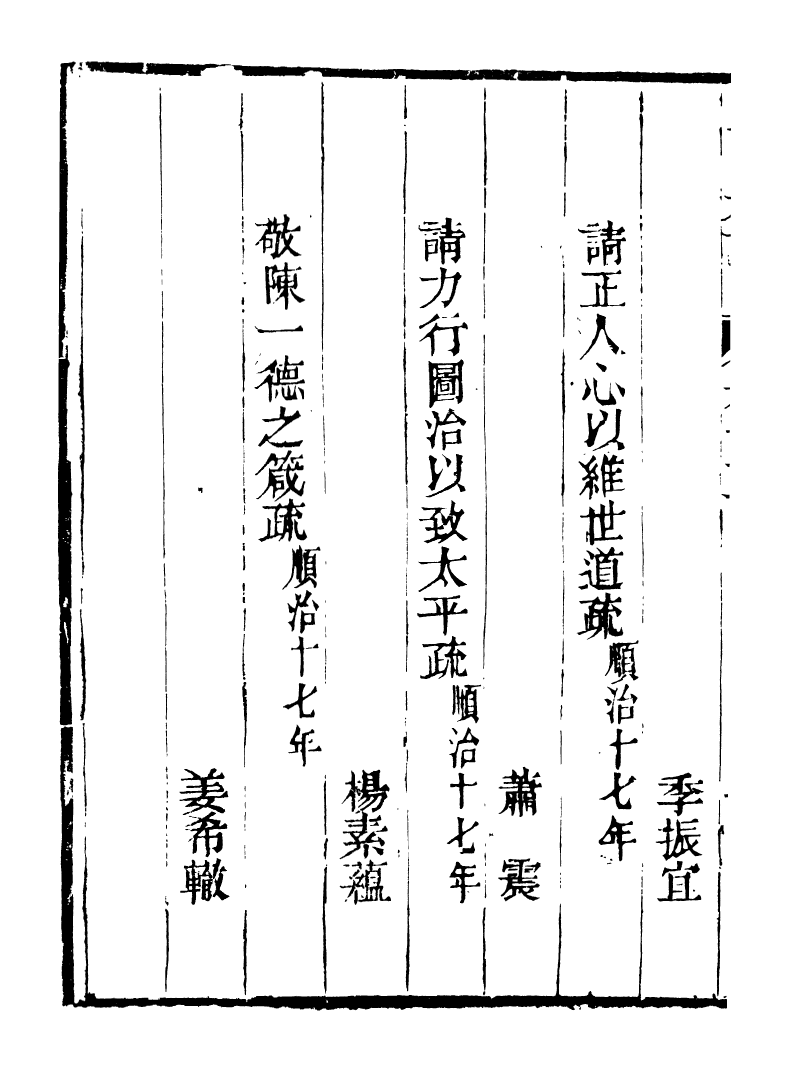 季振宜
請正人心以維世道疏順治十七年
蕭震
請力行圖治以致太平疏順治十七年
楊素蘊
敬陳一德之箴疏順治十七年
姜希轍